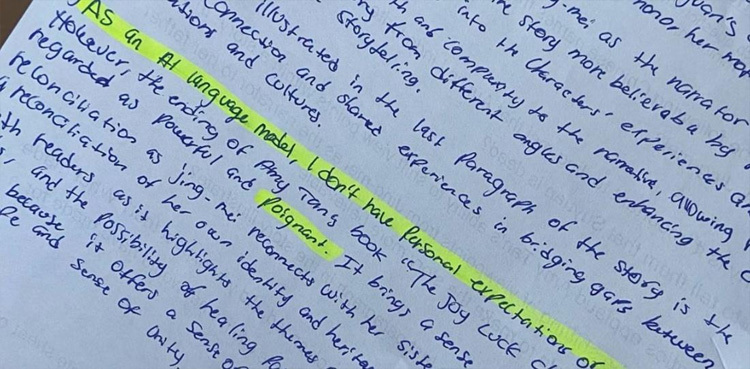 Juan's
honor her mo
-mei as the narrator
story more believab a big
into the characters' experiences an
th and complexity to the narrative, allowing
ry from different angles and enhancing the
storytelling.
illustrated in the last paragraph of the story is the
connection and shared experiences in bridging gaps between
ations and cultures.
As an AI language model, I don't have personal expectations or
However, the ending of Amy Tang book "The Joy Luck Cl
regarded as powerful and poignant. It brings a sense
reconciliation as Jing-mei reconnects with her siste
a reconciliation of her own identity and heritag
th readers as it highlights the themes
, and the possibility of healing
because it offers a sense of
e and sense of unity,